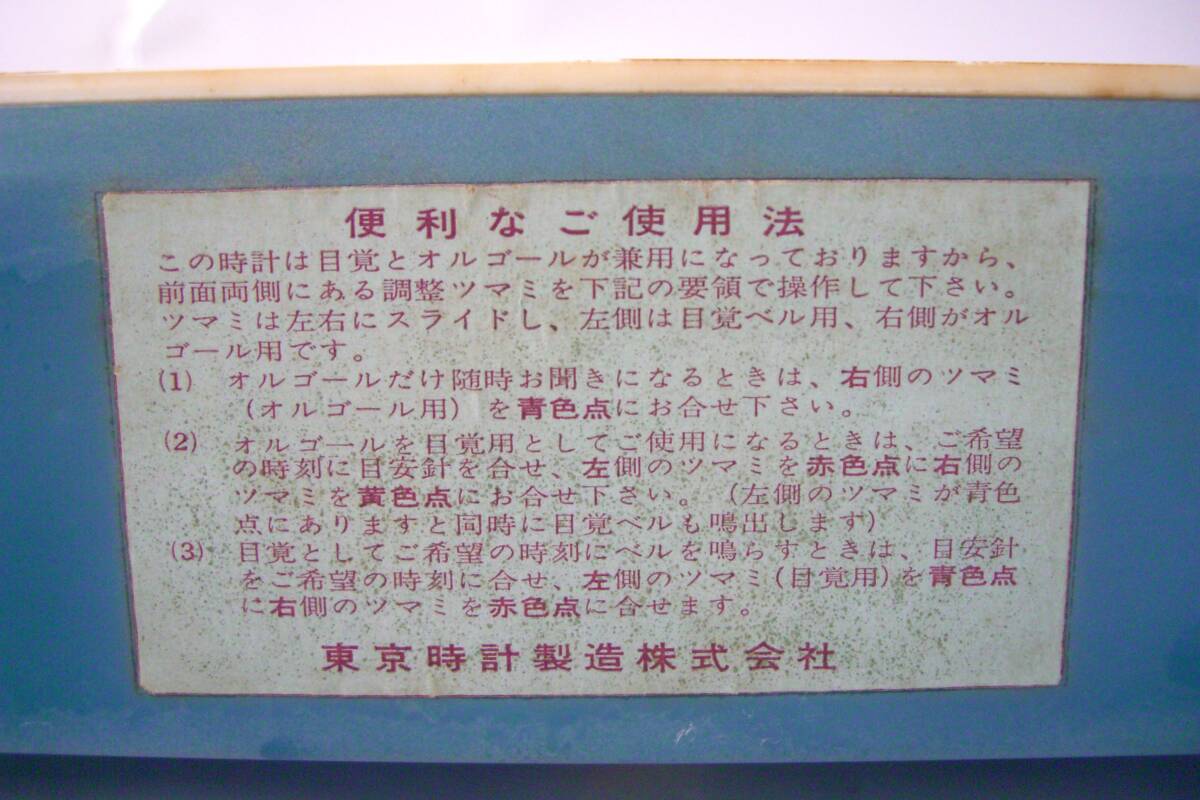 便利なご使用法
この時計は目覚とオルゴールが兼用になっておりますから、
前面両側にある調整ツマミを下記の要領で操作して下さい。
ツマミは左右にスライドし、左側は目覚ベル用、右側がオル
ゴール用です。
(1) オルゴールだけ随時お聞きになるときは、右側のツマミ
(オルゴール用)を青色点にお合せ下さい。
(2) オルゴールを目覚用としてご使用になるときは、ご希望
の時刻に目安針を合せ、左側のツマミを赤色点に右側の
ツマミを黄色点にお合せ下さい。(左側のツマミが青色
点にありますと同時に目覚ベルも鳴出します)
(3) 目覚としてご希望の時刻にベルを鳴らすときは、目安針
をご希望の時刻に合せ、左側のツマミ(目覚用)を青色点
に右側のツマミを赤色点に合せます。
東京時計製造株式会社